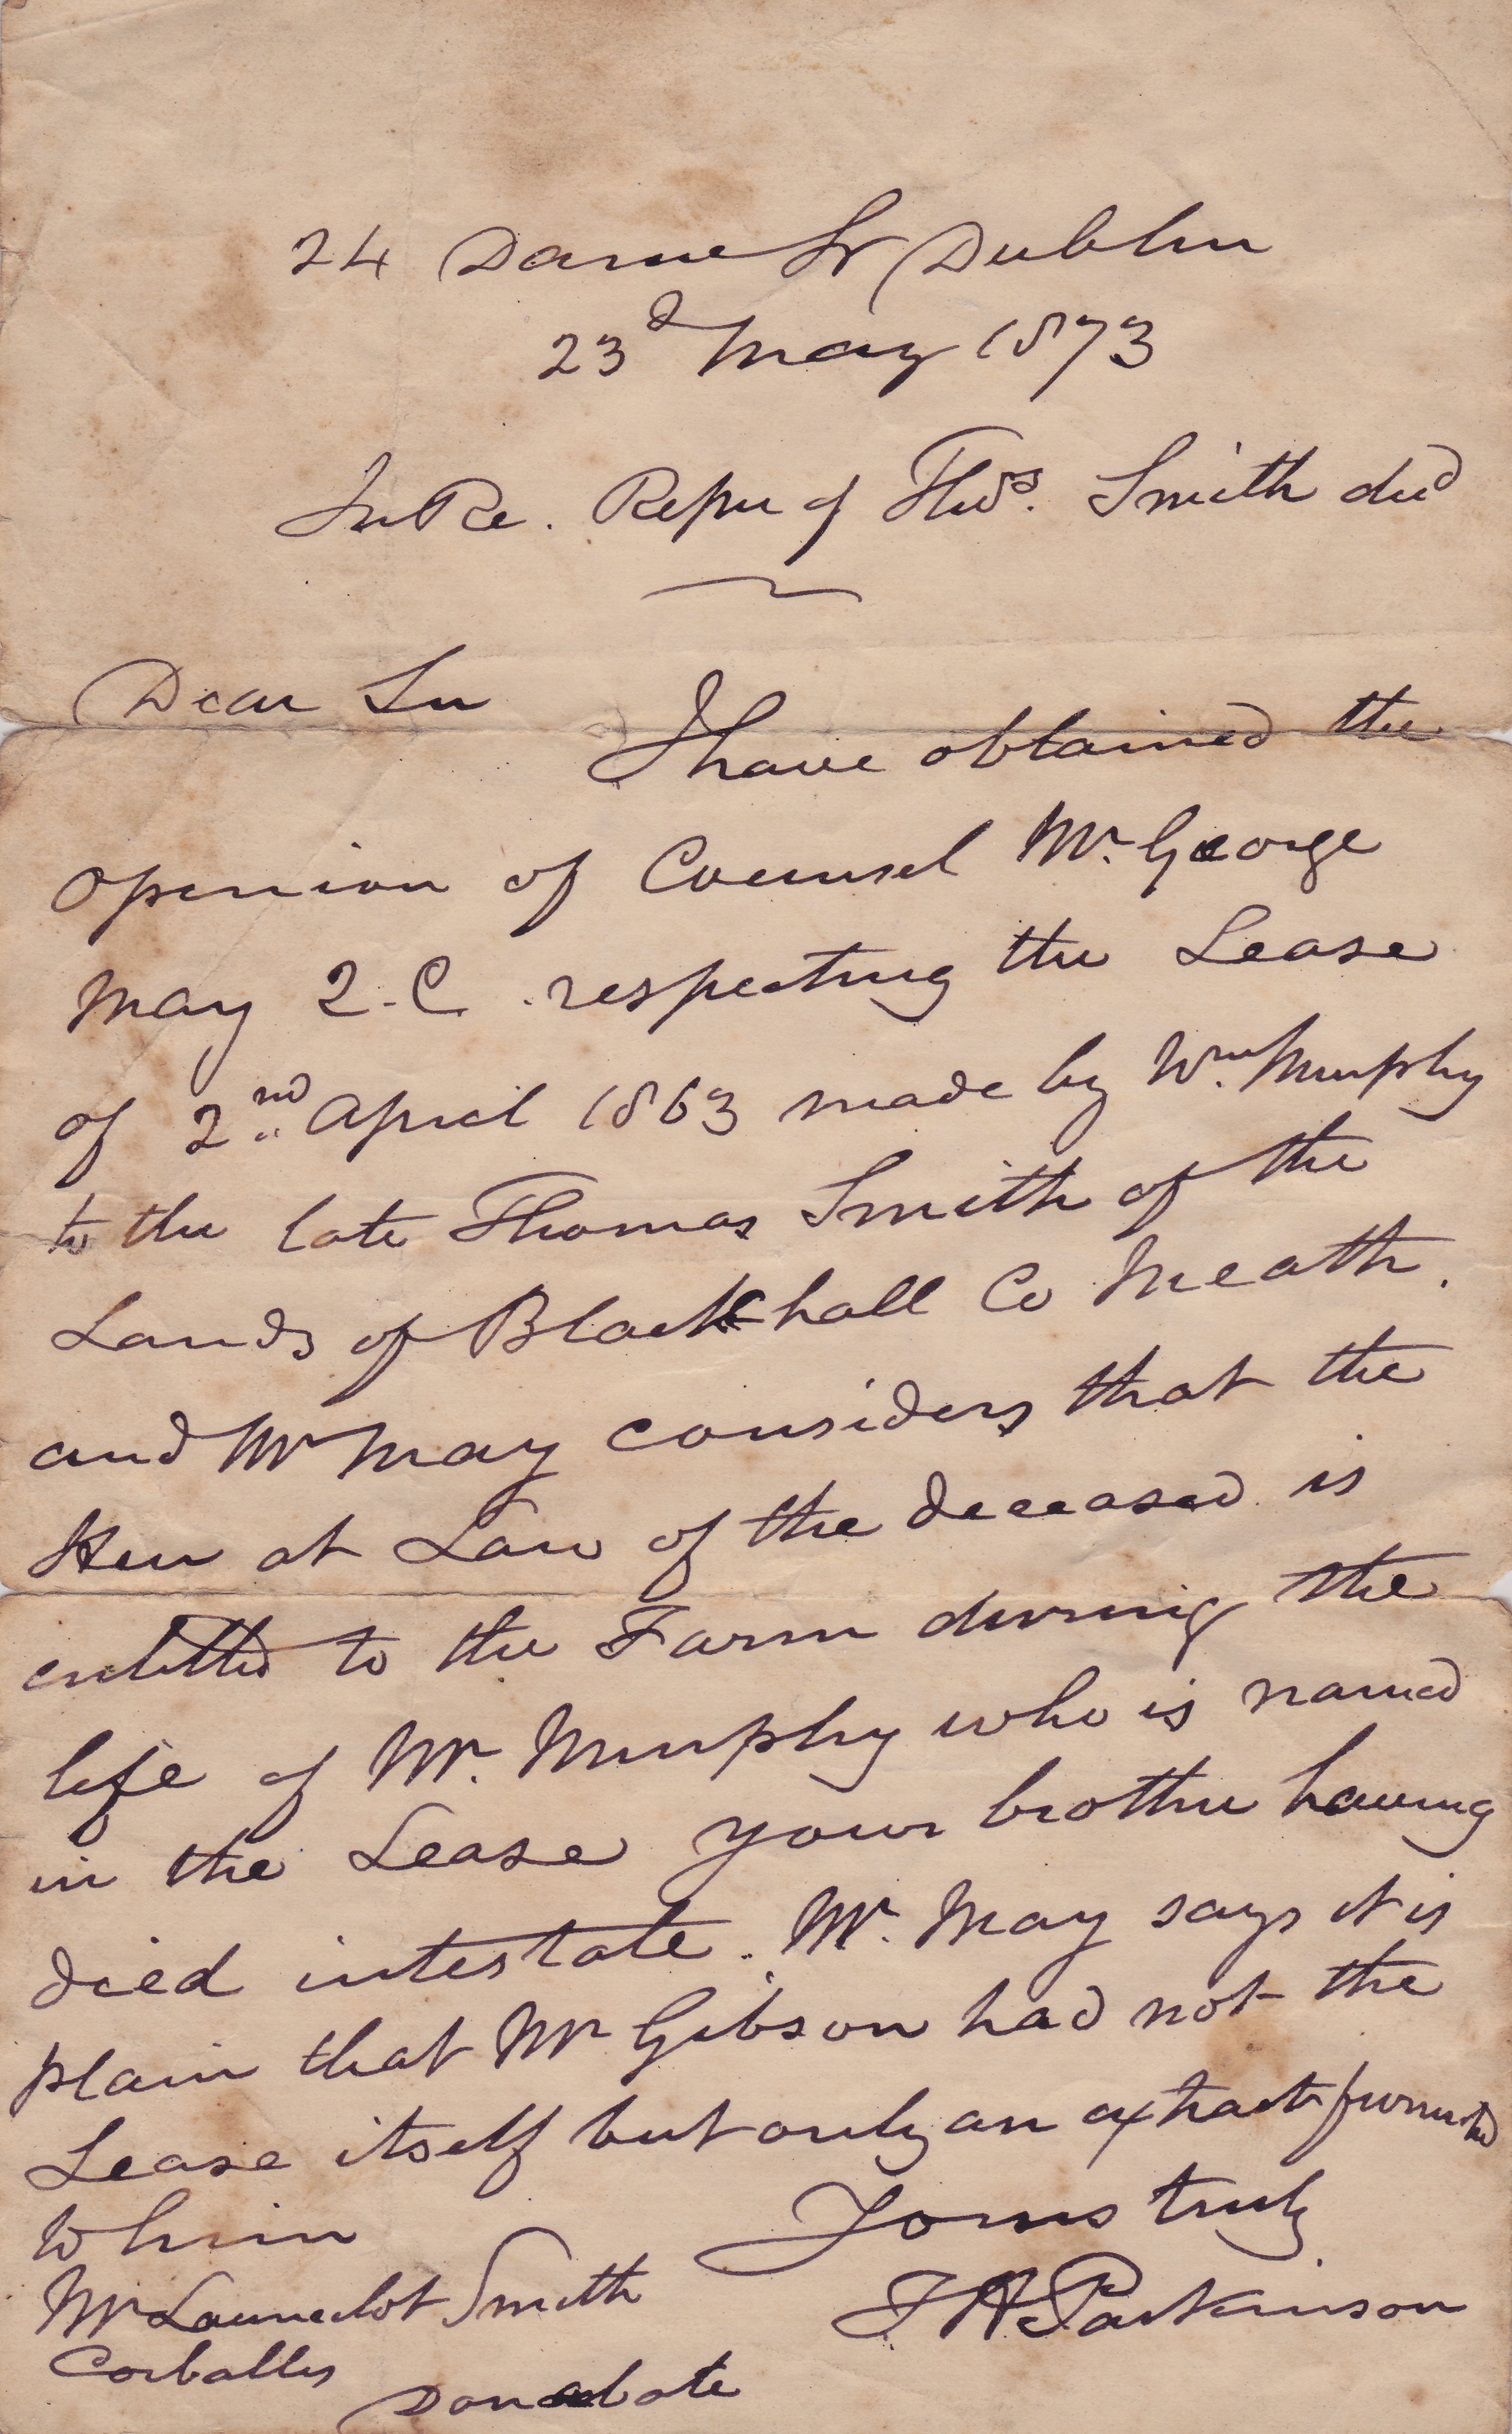 24 Dame St Dublin
23d May 1873
In Re. Repre of Thos. Smith decd
Dear Sir
I have obtained the
opinion of Counsel Mr. George
May Q.C. respecting the Lease
of 2nd April 1863 made by Wm. Murphy
to the late Thomas Smith of the
Lands of Blackhall Co Meath.
and Mr May considers that the
Heir at Law of the deceased is
entitled to the Farm during the
life of Mr. Murphy who is named
in the Lease your brother having
died intestate. Mr. May says it is
plain that Mr Gibson had not the
Lease itself but only an extract furnished
to him
Yours truly
Mr Launcelot Smith
Parkinson
Corballis
Donabate